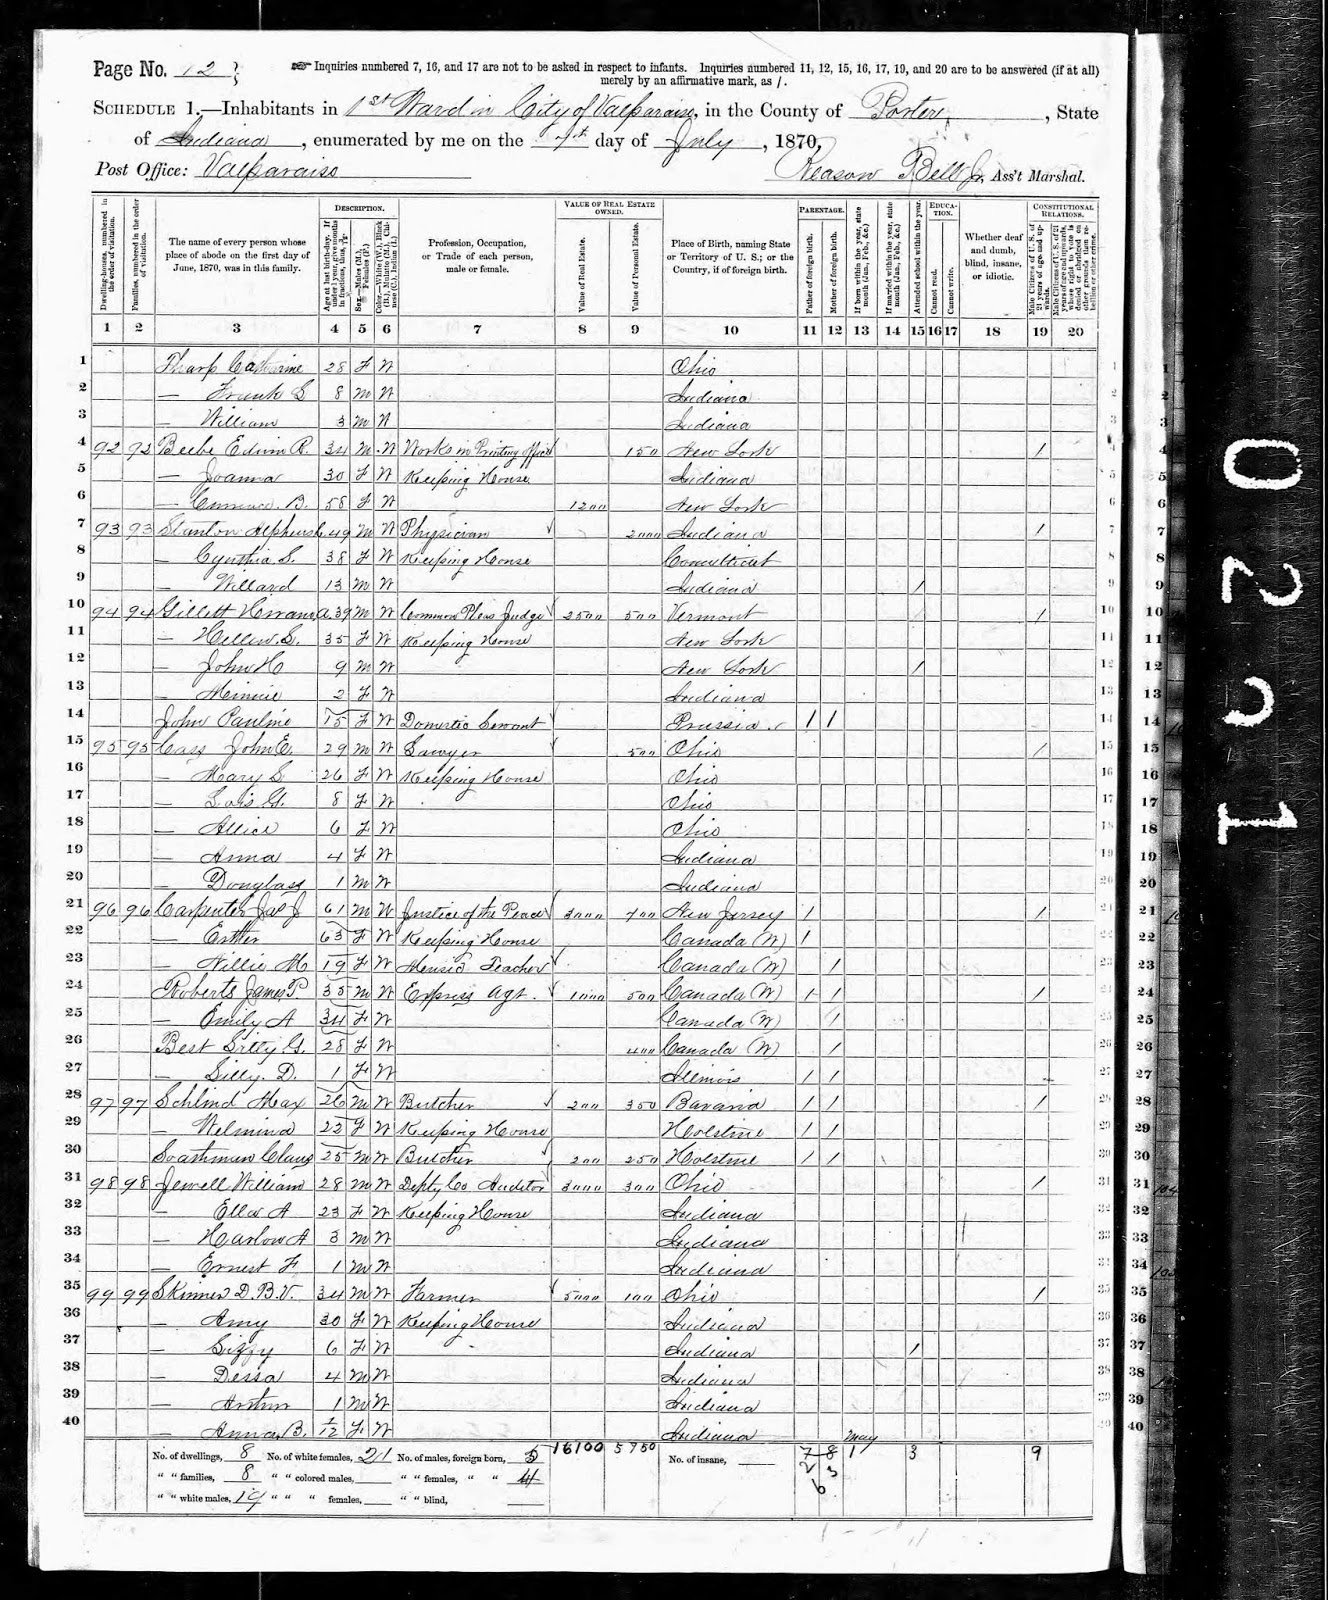 Page No. 12
☞ Inquiries numbered 7, 16, and 17 are not to be asked in respect to infants. Inquiries numbered 11, 12, 15, 16, 17, 19, and 20 are to be answered (if at all)
merely by an affirmative mark, as /.
SCHEDULE 1.—Inhabitants in 1st Ward in City of Valparaiso, in the County of Porter, State
of Indiana, enumerated by me on the 7th day of July, 1870,
Post Office: Valparaiso
Reason Bell Jr, Ass't Marshal.
Dwelling-houses, numbered in the order of visitation.
Families, numbered in the order of visitation.
The name of every person whose place of abode on the first day of June, 1870, was in this family.
DESCRIPTION.
Age at last birth-day. If under 1 year, give months in fractions, thus,
Sex.—Males (M.), Females (F.)
Color.—White (W.), Black (B.), Mulatto (M.), Chinese (C.), Indian (I.)
Profession, Occupation, or Trade of each person, male or female.
VALUE OF REAL ESTATE OWNED.
Value of Real Estate.
Value of Personal Estate.
Place of Birth, naming State or Territory of U. S.; or the Country, if of foreign birth.
PARENTAGE.
Father of foreign birth.
Mother of foreign birth.
If born within the year, state month (Jan., Feb., &c.)
If married within the year, state month (Jan., Feb., &c.)
Attended school within the year.
EDUCATION.
Cannot read.
Cannot write.
Whether deaf and dumb, blind, insane, or idiotic.
CONSTITUTIONAL RELATIONS.
Male Citizens of U. S. of 21 years of age and upwards.
Male Citizens of U. S. of 21 years of age and upwards, whose right to vote is denied or abridged on other grounds than rebellion or other crime.
1 2 3 4 5 6 7 8 9 10 11 12 13 14 15 16 17 18 19 20
1 Tharp Catharine 28 F W Ohio 1
2 — Frank S 8 M W Indiana 2
3 — William 3 M W Indiana 3
4 92 92 Beebe Edwin R. 34 M W Works in Printing Office 150 New York / 4
5 — Joanna 30 F W Keeping House Indiana 5
6 — B. 58 F W 1200 New York 6
7 93 93 Stanton 49 M W Physician 2000 Indiana / 7
8 — Cynthia S. 38 F W Keeping House Connetticut 8
9 — Willard 13 M W Indiana / 9
10 94 94 Gillett Hiram A. 39 M W Common Pleas Judge 2500 500 Vermont / 10
11 — Hellen S. 35 F W Keeping House New York 11
12 — John H 9 M W New York / 12
13 — Minnie 2 F W Indiana 13
14 John Pauline 15 F W Domestic Servant Prussia / / 14
15 95 95 Cass John E. 29 M W Lawyer 500 Ohio / 15
16 — Mary S 26 F W Keeping House Ohio 16
17 — Lois G. 8 F W Ohio 17
18 — Allice 6 F W Ohio 18
19 — Anna 4 F W Indiana 19
20 — Douglass 1 M W Indiana 20
21 96 96 Carpenter Jas J 61 M W Justice of the Peace 3000 700 New Jersey / / 21
22 — Esther 63 F W Keeping House Canada (W) / 22
23 — Nillie M 19 F W Music Teacher Canada (W) / 23
24 Roberts James P. 35 M W Express Agt. 1000 500 Canada (W) / / / 24
25 — Emily A 34 F W Canada (W) / 25
26 Best G. 28 F W 400 Canada (W) / 26
27 — Lilly. D. 1 F W Illinois / / 27
28 97 97 Schlind Max 26 M W Butcher 200 350 Bavaria / / / 28
29 — Welmina 22 F W Keeping House Holstine / / 29
30 Claus 25 M W Butcher 200 250 Holstine / / 30
31 98 98 Jewell William 28 M W Depty Co Auditor 3000 300 Ohio / 31
32 — Ella A 23 F W Keeping House Indiana 32
33 — Harlow A 3 M W Indiana 33
34 — Ernest F 1 M W Indiana 34
35 99 99 Skinner D. B. V. 34 M W Farmer 5000 100 Ohio / 35
36 — Amy 30 F W Keeping House Indiana 36
37 — Lizzy 6 F W Indiana / 37
38 — Dessa 4 M W Indiana 38
39 — Arthur 1 M W Indiana 39
40 — Anna B. 1/12 F W Indiana May 40
No. of dwellings, 8 No. of white females, 21 No. of males, foreign born, 5 16100 5750 No. of insane, 7 8 1 3 9
" " families, 8 " " colored males, " " females, " " 4 2 3
" " white males, 19 " " " females, " " blind, 6
0221